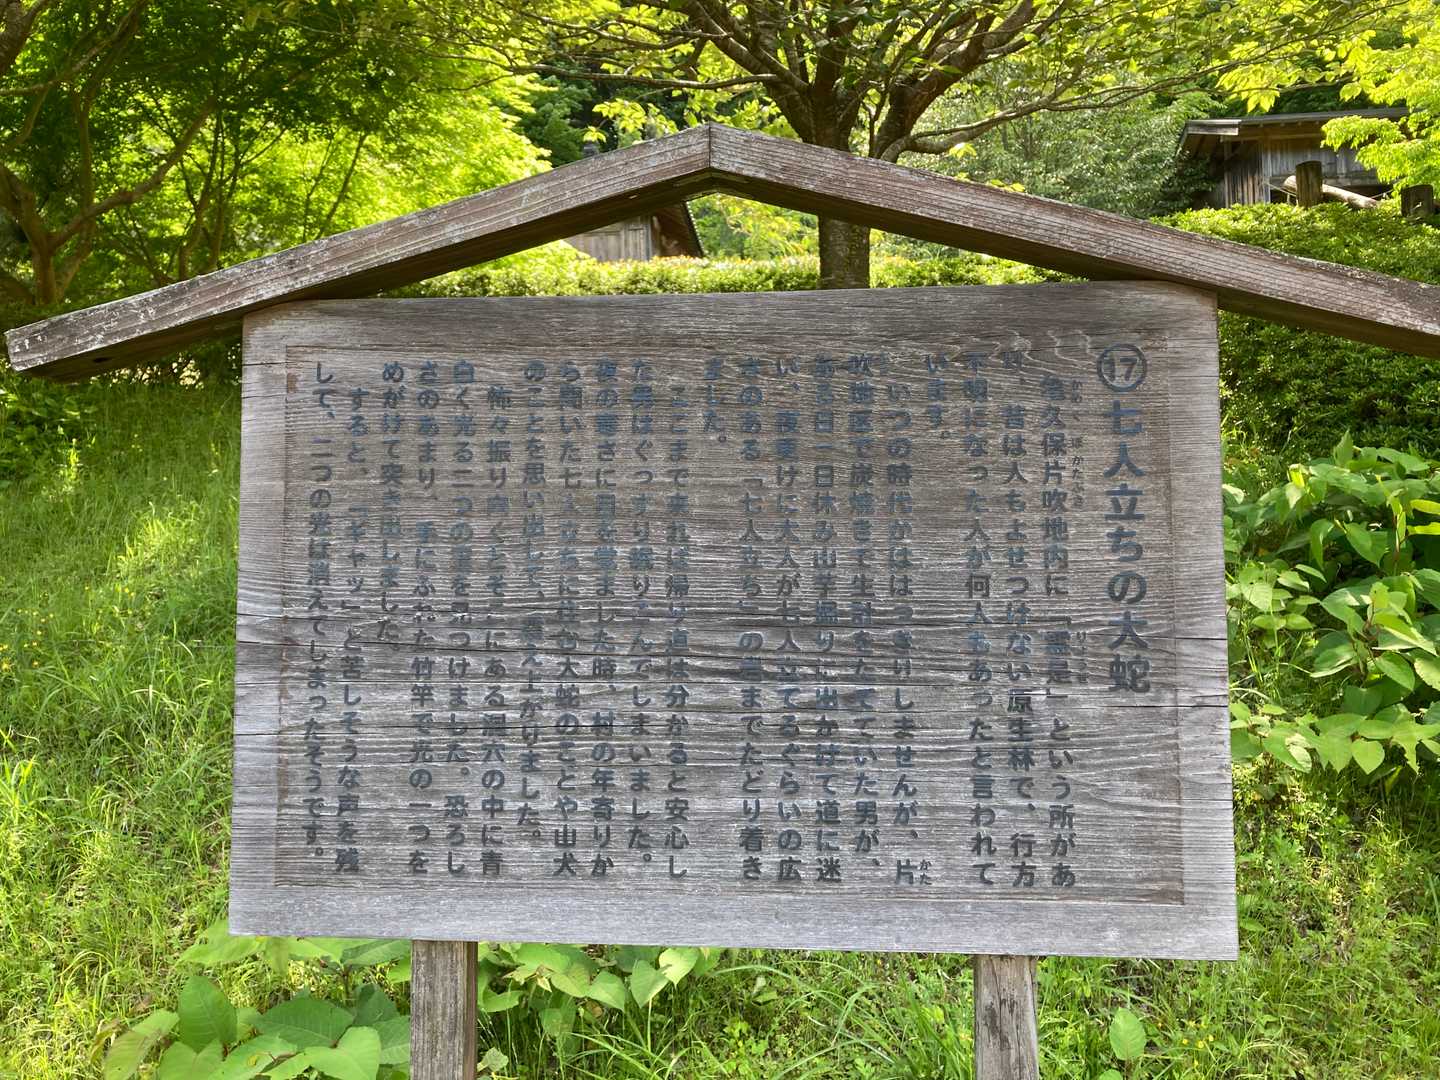 ⑰七人立ちの大蛇
亀久保片吹地内に「霊是」という所があ
り、昔は人もよせつけない原生林で、行方
不明になった人が何人もあったと言われて
います。
いつの時代かははっきりしませんが、片
吹地区で炭焼きで生計をたてていた男が、
ある日一日休み山芋掘りに出かけて道に迷
い、夜更けに大人が七人立てるぐらいの広
さのある「七人立ち」の岩までたどり着き
ました。
ここまで来れば帰り道は分かると安心し
た男はぐっすり眠りこんでしまいました。
夜の寒さに目を覚ました時、村の年寄りか
ら聞いた七人立ちに住む大蛇のことや山犬
のことを思い出して、震え上がりました。
怖々振り向くとそこにある洞穴の中に青
白く光る二つの目を見つけました。恐ろし
さのあまり、手にふれた竹竿で光の一つを
めがけて突き出しました。
すると、「ギャッ」と苦しそうな声を残
して、二つの光は消えてしまったそうです。